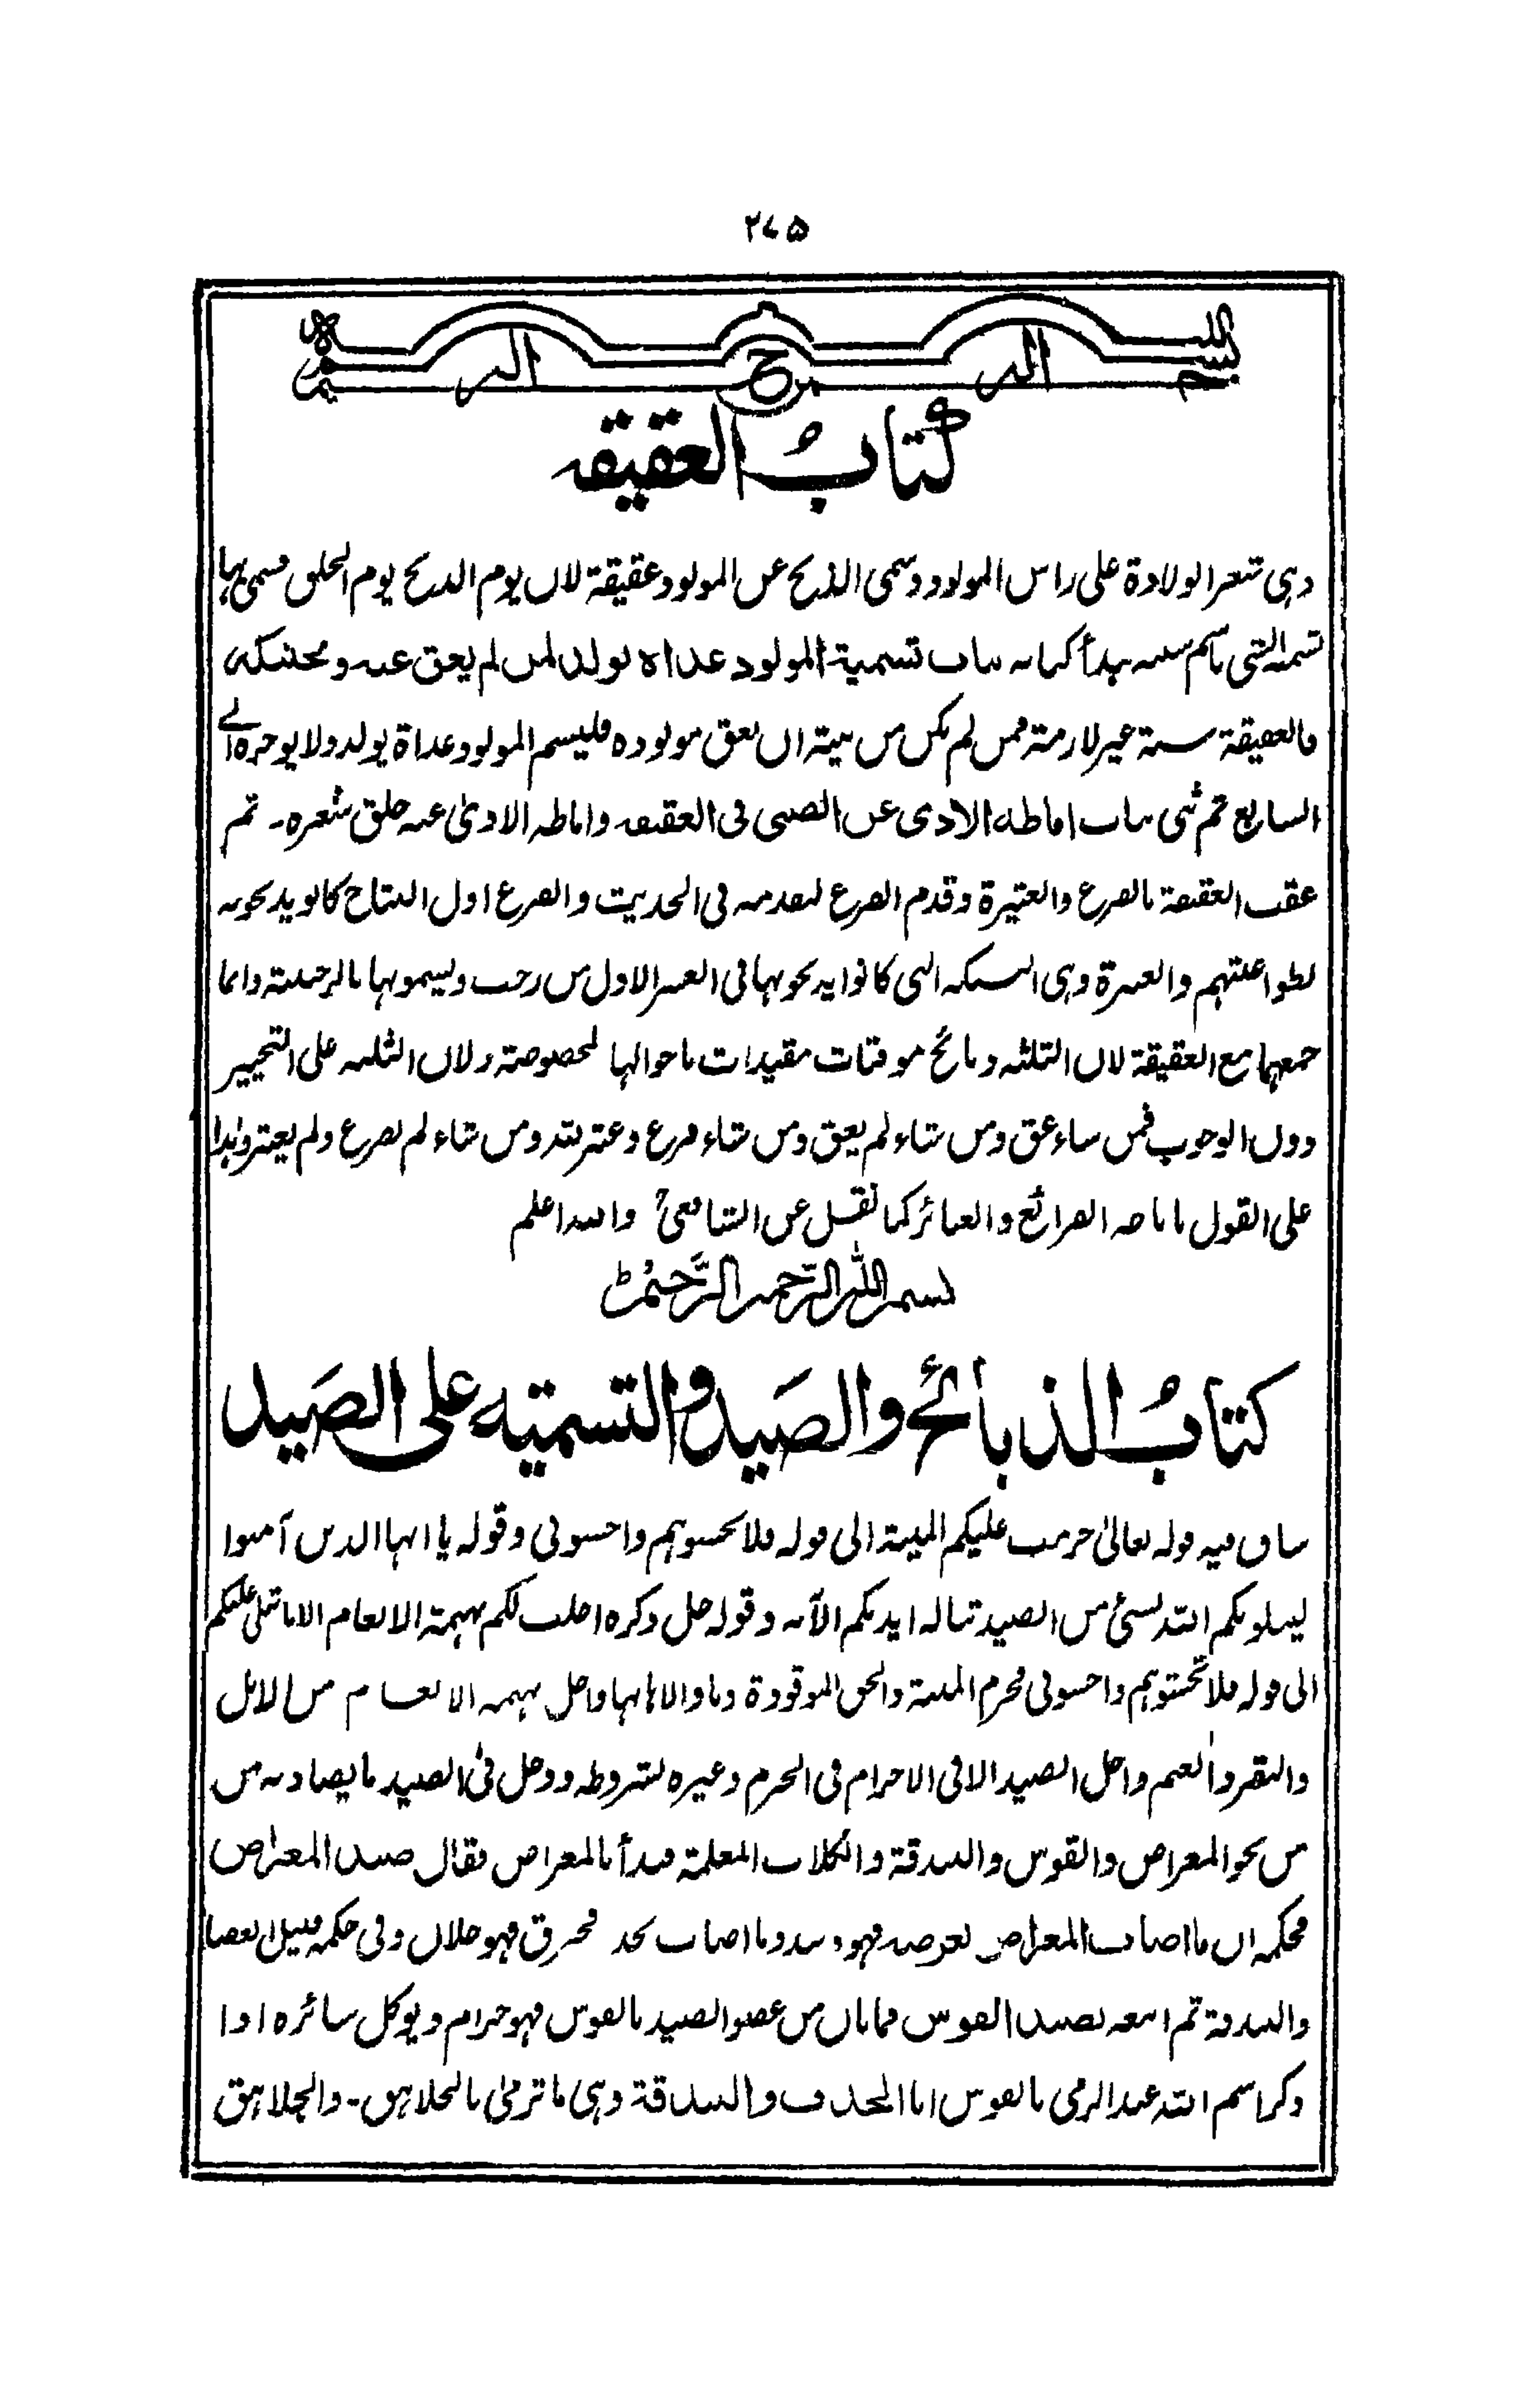 ۲۷۵
بسم الله الرحمن الرحيم
كتابُ العقيقه
وہی شعر الولادة علی راس المولود وسمی الذبح عن المولود عقيقة لان يوم الذبح يوم الحلق فسمی بہا
تسمية الشی باسم سببه بدأ كتابه بباب تسمية المولود غداة يولد لمن لم يعق عنه وتحنيكه
فالعقيقة سنة غير لازمة فمن لم يكن من نيته ان يعق مولوده فليسم المولود غداة يولد ولا يوخره الے
السابع ثم ثنی بباب اماطه الاذی عن الصبی فی العقيقه واماطه الاذیٰ عنه حلق شعره۔ ثم
عقب العقيقة بالفرع والعتيرة وقدم الفرع لتقدمه فی الحديث والفرع اول النتاج كانو يذبحونه
لطواغيتهم والعتيرة وہی النسيكه التی كانوا يذبحونہا فی العشر الاول من رجب ويسمونہا بالرجبية وانما
جمعہما مع العقيقة لان الثلثه ذبائح موقتات مقيدات باحوالہا لخصوصة ولان الثلثه علی التخيير
دون الوجوب فمن شاء عق ومن شاء لم يعق ومن شاء فرع وعتر لله ومن شاء لم يفرع ولم يعتر وہذا
علی القول باباحه الفرائع والعتائر كما نقل عن الشافعیؒ والله اعلم
بسم الله الرحمن الرحيم
كتابُ الذبائح والصَيد والتسميه علی الصَيد
بيان فيه قوله تعالیٰ حرمت عليكم الميتة الی قوله فلا تخشوہم واخشونی وقوله يا ايہا الذين آمنوا
ليبلونكم الله بشیٔ من الصيد تناله ايديكم الآيه وقوله جل ذكره احلت لكم بہيمة الانعام الا ما يتلی عليكم
الی قوله فلا تخشوہم واخشونی فحرم الميتة والخنق الموقوذة وما والاہا بہا واحل بہيمه الانعام من الابل
والبقر والغنم واحل الصيد الا فی الاحرام فی الحرم وغيره بشروطه ودخل فیٔ الصيد ما يصاد به من
من نحو المعراض والقوس والبندقة والكلاب المعلمة فبدأ بالمعراض فقال صيد المعراض
فحكمه ان ما اصاب المعراض بعرضه فہو وقيذ وما اصاب بحد فخرق فہو حلال وفی حكمه قبيل العصا
والبندقة ثم اتبعه بصيد القوس فما بان من عضو الصيد بالقوس فہو حرام ويوكل سائره اذا
ذكر اسم الله عند الرمی بالقوس اما الخذف والبندقة وہی ما ترمیٰ بالجلاہق۔ والجلاہق